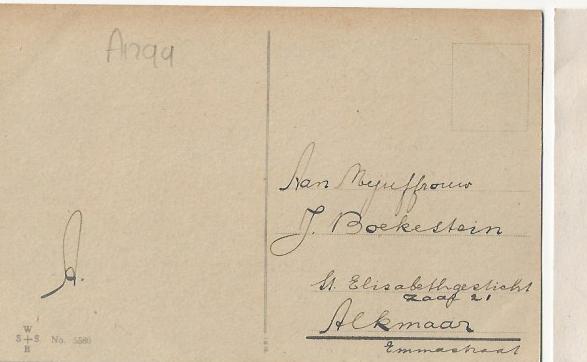 Aan Mejuffrouw
J. Boekestein
St. Elisabethgesticht
zaal 21
Alkmaar
Emmastraat
W
S S
B
No. 5580